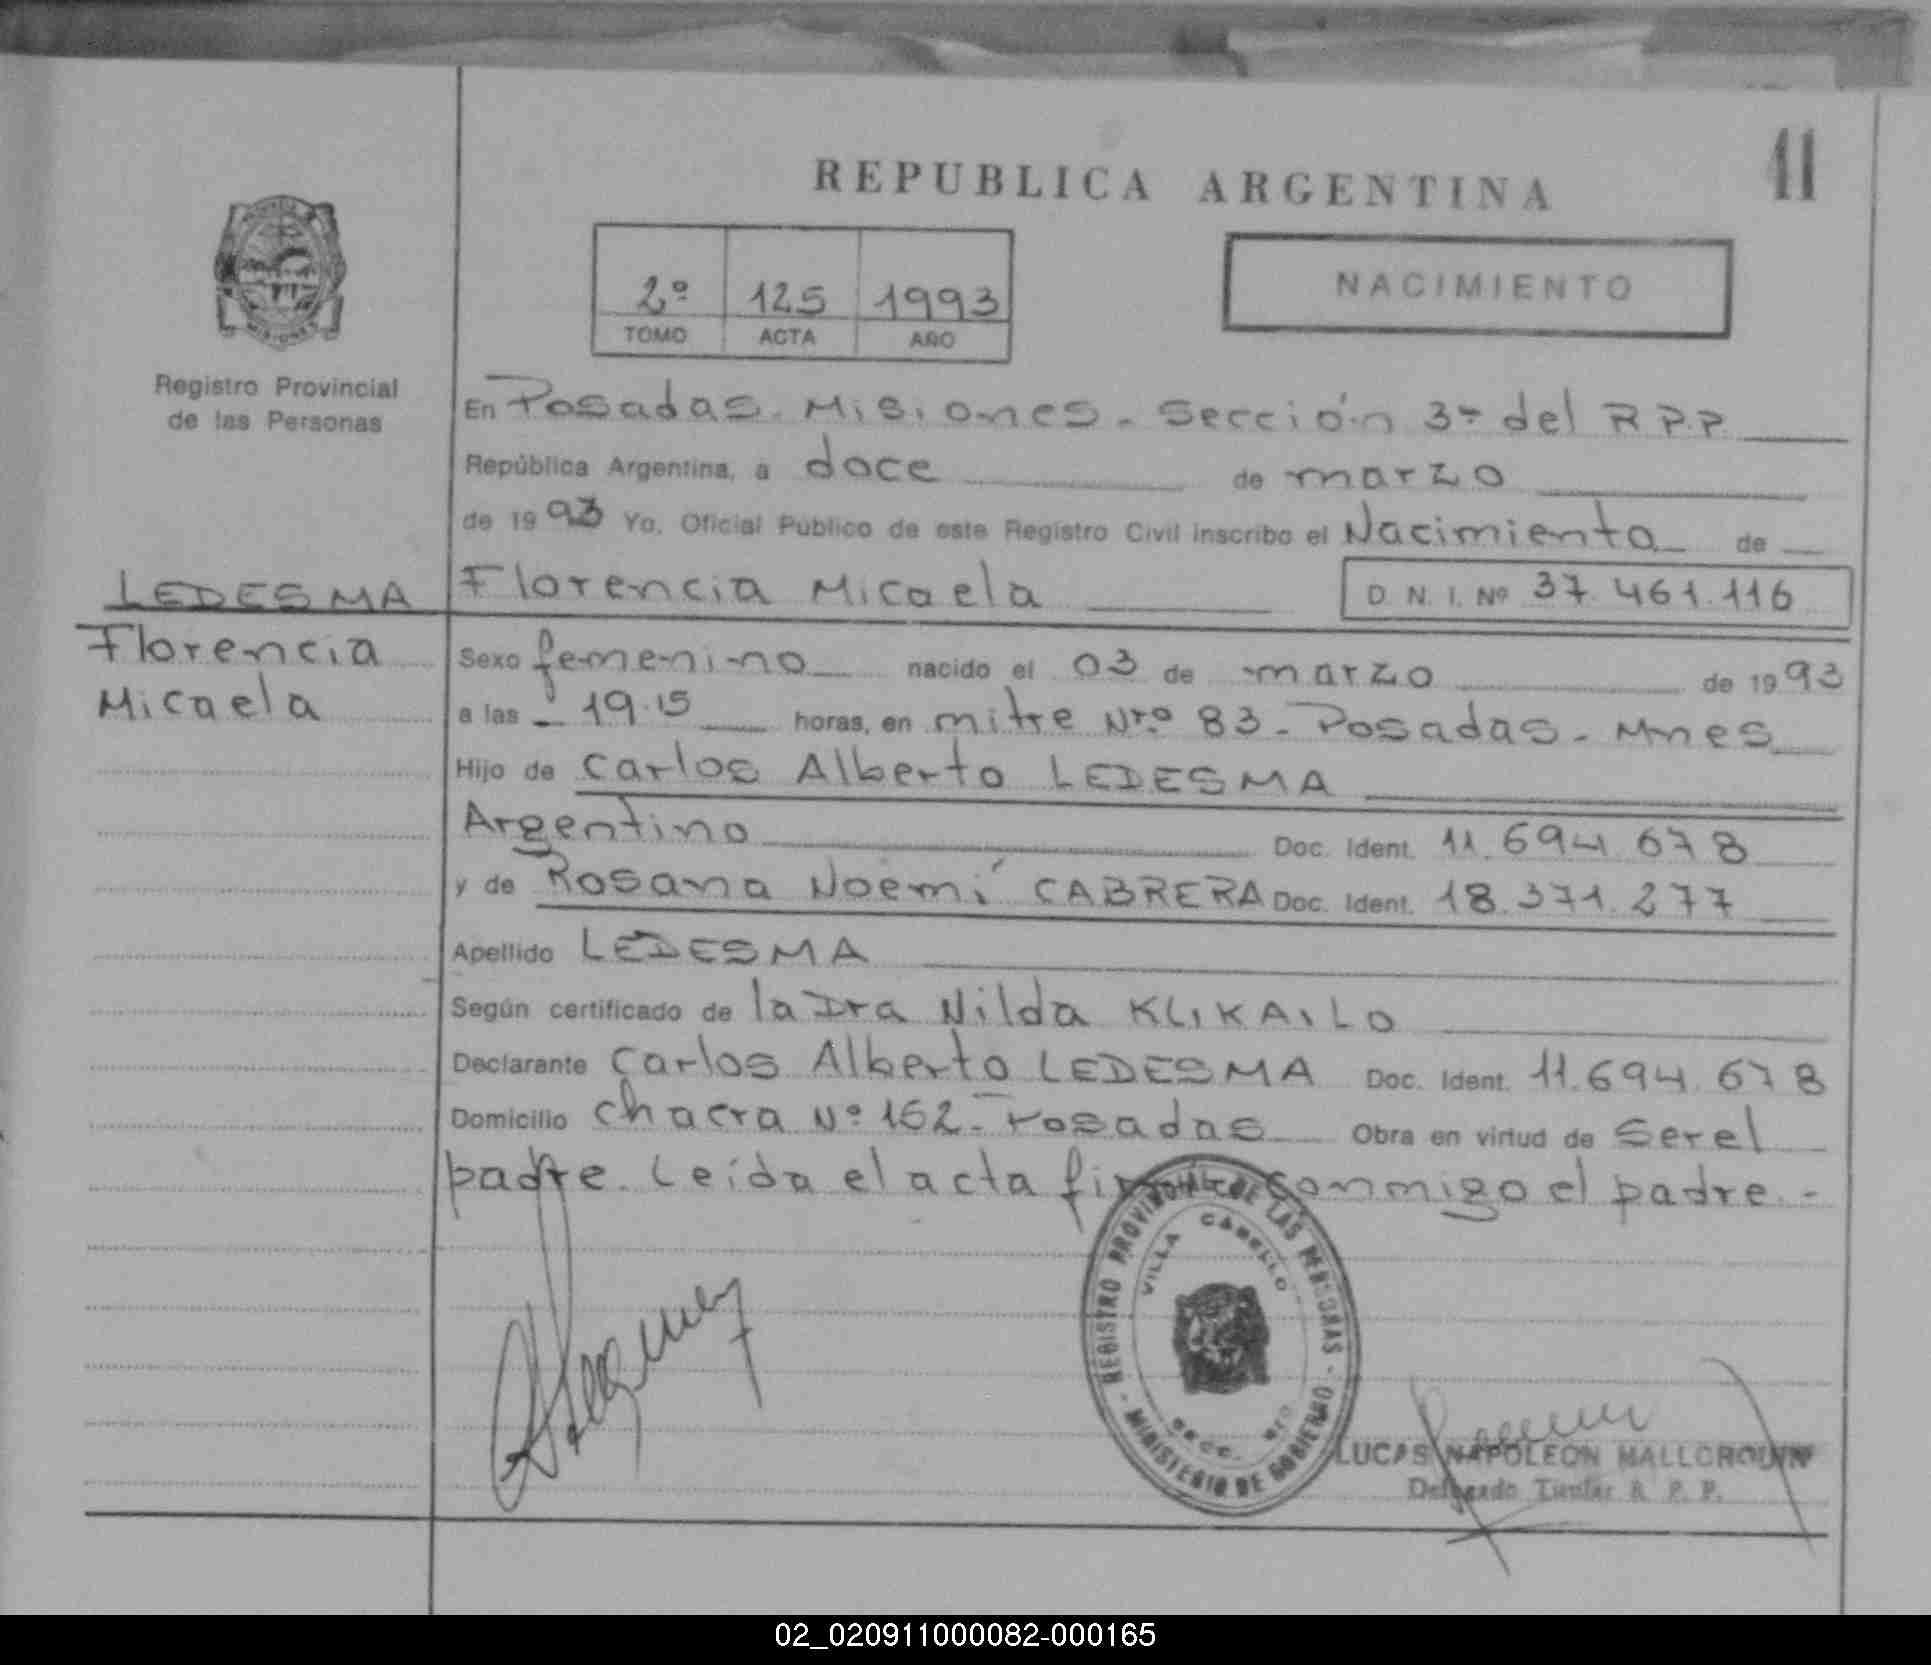 REPUBLICA ARGENTINA
11
2º 125 1993
TOMO ACTA AÑO
NACIMIENTO
MISIONES
Registro Provincial
de las Personas
En Posadas. Misiones. Sección 3ª del R.P.P.
República Argentina, a doce de marzo
de 1993 Yo, Oficial Público de este Registro Civil inscribo el Nacimiento de
LEDESMA Florencia Micaela D. N. I. Nº 37.461.116
Florencia
Micaela
Sexo femenino nacido el 03 de marzo de 1993
a las 19.15 horas, en mitre Nrº 83. Posadas. Mnes
Hijo de Carlos Alberto LEDESMA
Argentino Doc. Ident. 11.694.678
y de Rosana Noemí CABRERA Doc. Ident. 18.371.277
Apellido LEDESMA
Según certificado de la Dra Nilda KLIKAILO
Declarante Carlos Alberto LEDESMA Doc. Ident. 11.694.678
Domicilio Chacra Nº 162. Posadas Obra en virtud de ser el
padre. Leída el acta conmigo el padre.-
REGISTRO PROVINCIAL DE LAS PERSONAS
VILLA CABELLO
SECC.
MINISTERIO DE GOBIERNO
LUCAS NAPOLEON MALLORQUIN
Delegado Titular R. P. P.
02_020911000082-000165